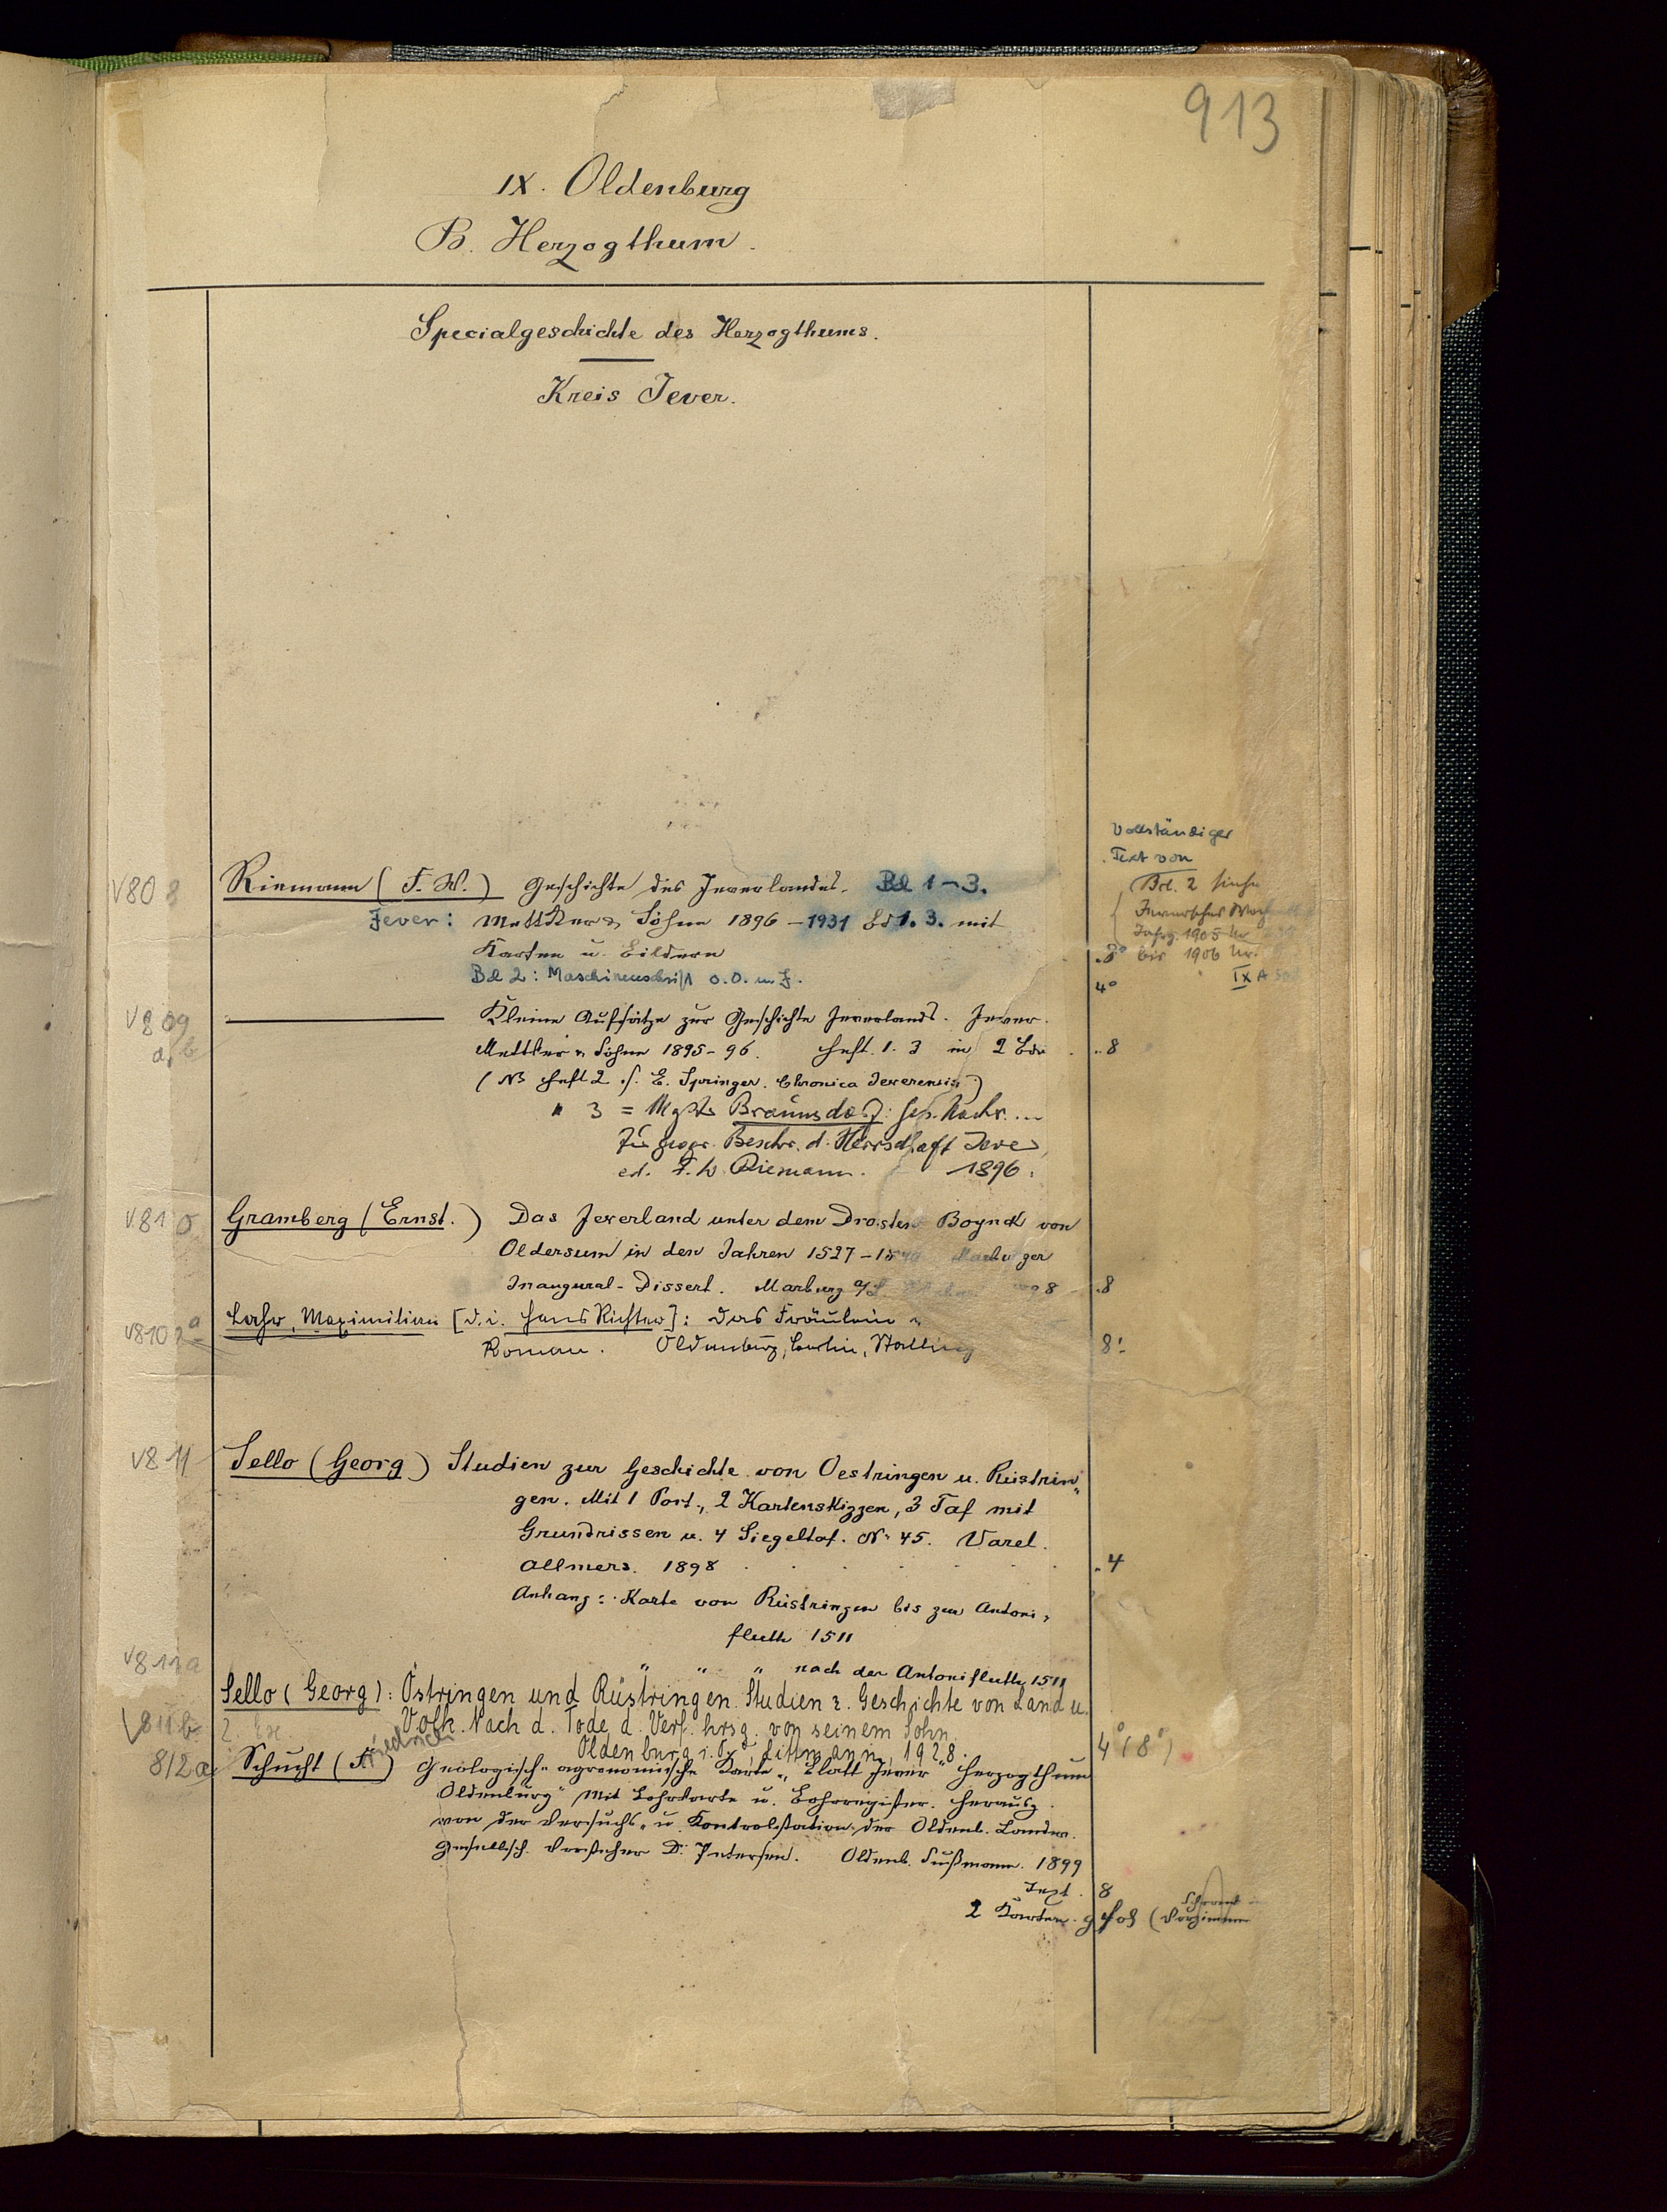 913
IX. Oldenburg
B. Herzogthum.
Specialgeschichte des Herzogthums.
Kreis Jever.
Vollständiger
Text von
Bd. 2 siehe
Jahrg. 1905 Nr.
bis 1906 Nr.
IX A
V808
Riemann (F. W.) Geschichte des Jeverlandes. Bd 1-3.
Jever: Mettcker & Söhne 1896-1931 Bd 1. 3. mit
Karten u. Bildern 8°
Bd 2: Maschinenschrift o.O. u. J. 4°
V809 a, b
Kleine Aufsätze zur Geschichte Jeverlands. Jever.
Mettcker & Söhne 1895-96. Heft. 1. 3 in 2 Bdn . 8
(NB Heft 2 s. E. Springer. Chronica Jeverensis)
" 3 = Braunsdorf: Nachr. ...
Beschr. d. Herrschaft Jever,
ed. F. W. Riemann. 1896.
V810
Gramberg (Ernst.) Das Jeverland unter dem Drosten Boynck von
Oldersum in den Jahren 1527-1540 Marburger
Inaugural-Dissert. Marburg a/L 8 8
V810 a
Lahr, Maximilian [d. i. Hans Richter]: Das Fräulein
Roman. Oldenburg, Berlin, Stalling 8°
V811
Sello (Georg) Studien zur Geschichte von Oestringen u. Rüstrin„
gen. Mit 1 Port., 2 Kartenskizzen, 3 Taf mit
Grundrissen u. 4 Siegeltaf. N: 45. Varel.
Allmers. 1898 . 4
Anhang: Karte von Rüstringen bis zur Antoni,
fluth 1511
" " " nach der Antonifluth 1511
V811a
Sello (Georg): Östringen und Rüstringen. Studien z. Geschichte von Land u.
Volk. Nach d. Tode d. Verf. hrsg. von seinem Sohn.
Oldenburg i. O., Littmann, 1928. 4° (8°)
811b 2. Ex
812a
Schucht (Friedrich) Geologisch-agronomische Karte „Blatt Jever" Herzogthum
Oldenburg" Mit Bohrkarte u. Bohrregister. Herausg.
von der Versuchs- u. Kontrolstation der Oldenb. Landw.
Gesellsch. Vorsteher Dr. Petersen. Oldenb. 1899
Text. 8
2 Karten. gr Fol (Schrank
Vorzimmer